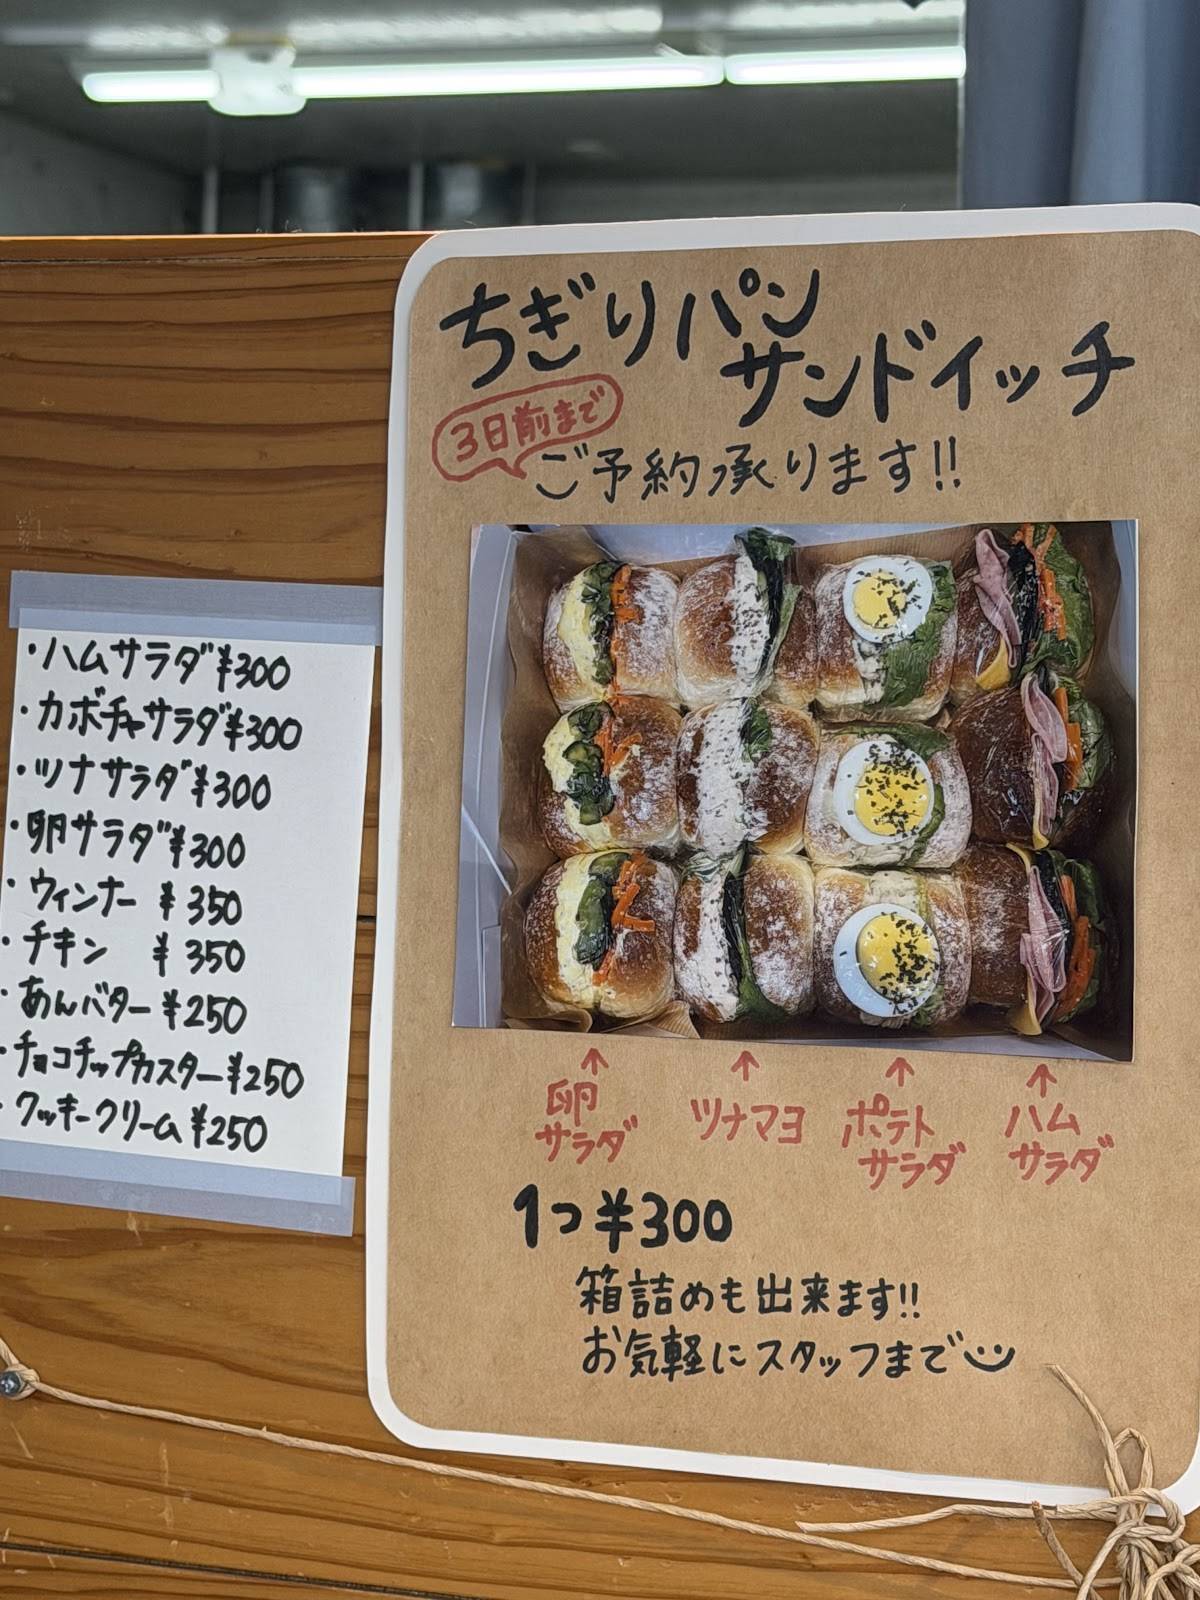 ちぎりパン
サンドイッチ
3日前まで
ご予約承ります!!
卵
サラダ
ツナマヨ
ポテト
サラダ
ハム
サラダ
1つ¥300
箱詰めも出来ます!!
お気軽にスタッフまで
・ハムサラダ¥300
・カボチャサラダ¥300
・ツナサラダ¥300
・卵サラダ¥300
・ウィンナー ¥350
・チキン ¥350
・あんバター¥250
・チョコチップカスター¥250
・クッキークリーム¥250